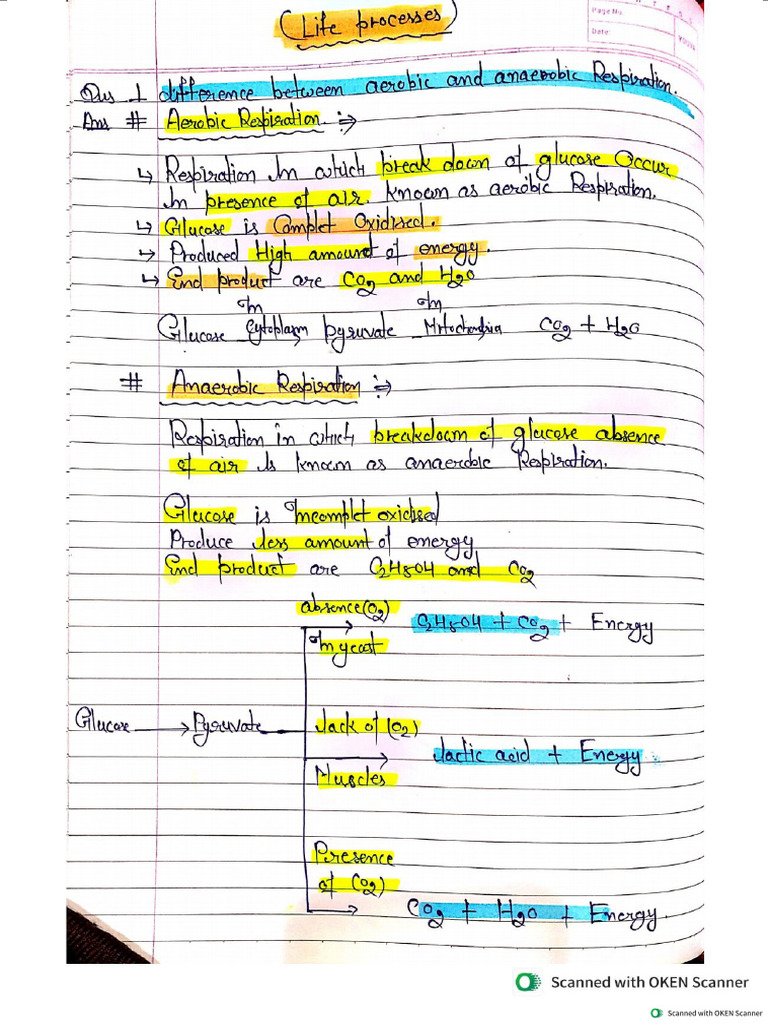 Life processes
Page No.
Date:
YOUVA
Qus 1 difference between aerobic and anaerobic Respiration.
Ans # Aerobic Respiration :→
↳ Respiration In which break down of glucose Occur
In presence of air. known as aerobic Respiration.
↳ Glucose is Complet Oxidised.
↳ Produced High amount of energy.
↳ End product are CO2 and H2O
In In
Glucose Cytoplasm pyruvate Mitochondria CO2 + H2O
# Anaerobic Respiration :→
Respiration in which breakdown of glucose absence
of air Is known as anaerobic Respiration.
Glucose is Incomplet oxidised
Produce less amount of energy
End product are C2H5OH and CO2
absence (O2)
C2H5OH + CO2 + Energy
In yeast
Glucose → Pyruvate Lack of (O2)
Lactic acid + Energy
Muscles
Presence
of (O2)
CO2 + H2O + Energy.
Scanned with OKEN Scanner
Scanned with OKEN Scanner